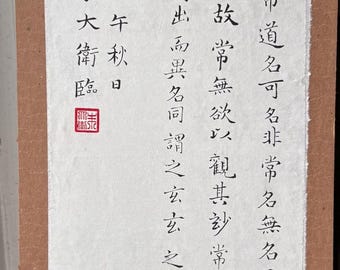 常道名可名非常名無名
故常無欲以觀其妙常
出而異名同謂之玄玄之
午秋日
大衛臨